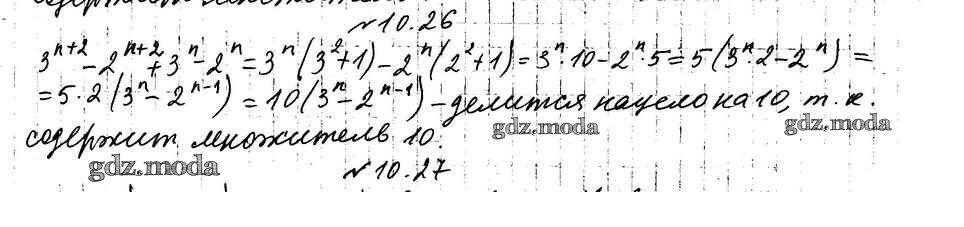 №10.26
3ⁿ⁺² - 2ⁿ⁺² + 3ⁿ - 2ⁿ = 3ⁿ(3²+1) - 2ⁿ(2²+1) = 3ⁿ·10 - 2ⁿ·5 = 5(3ⁿ·2 - 2ⁿ) =
= 5·2(3ⁿ - 2ⁿ⁻¹) = 10(3ⁿ - 2ⁿ⁻¹) - делится нацело на 10, т.к.
содержит множитель 10.
gdz.moda
gdz.moda
gdz.moda
№10.27